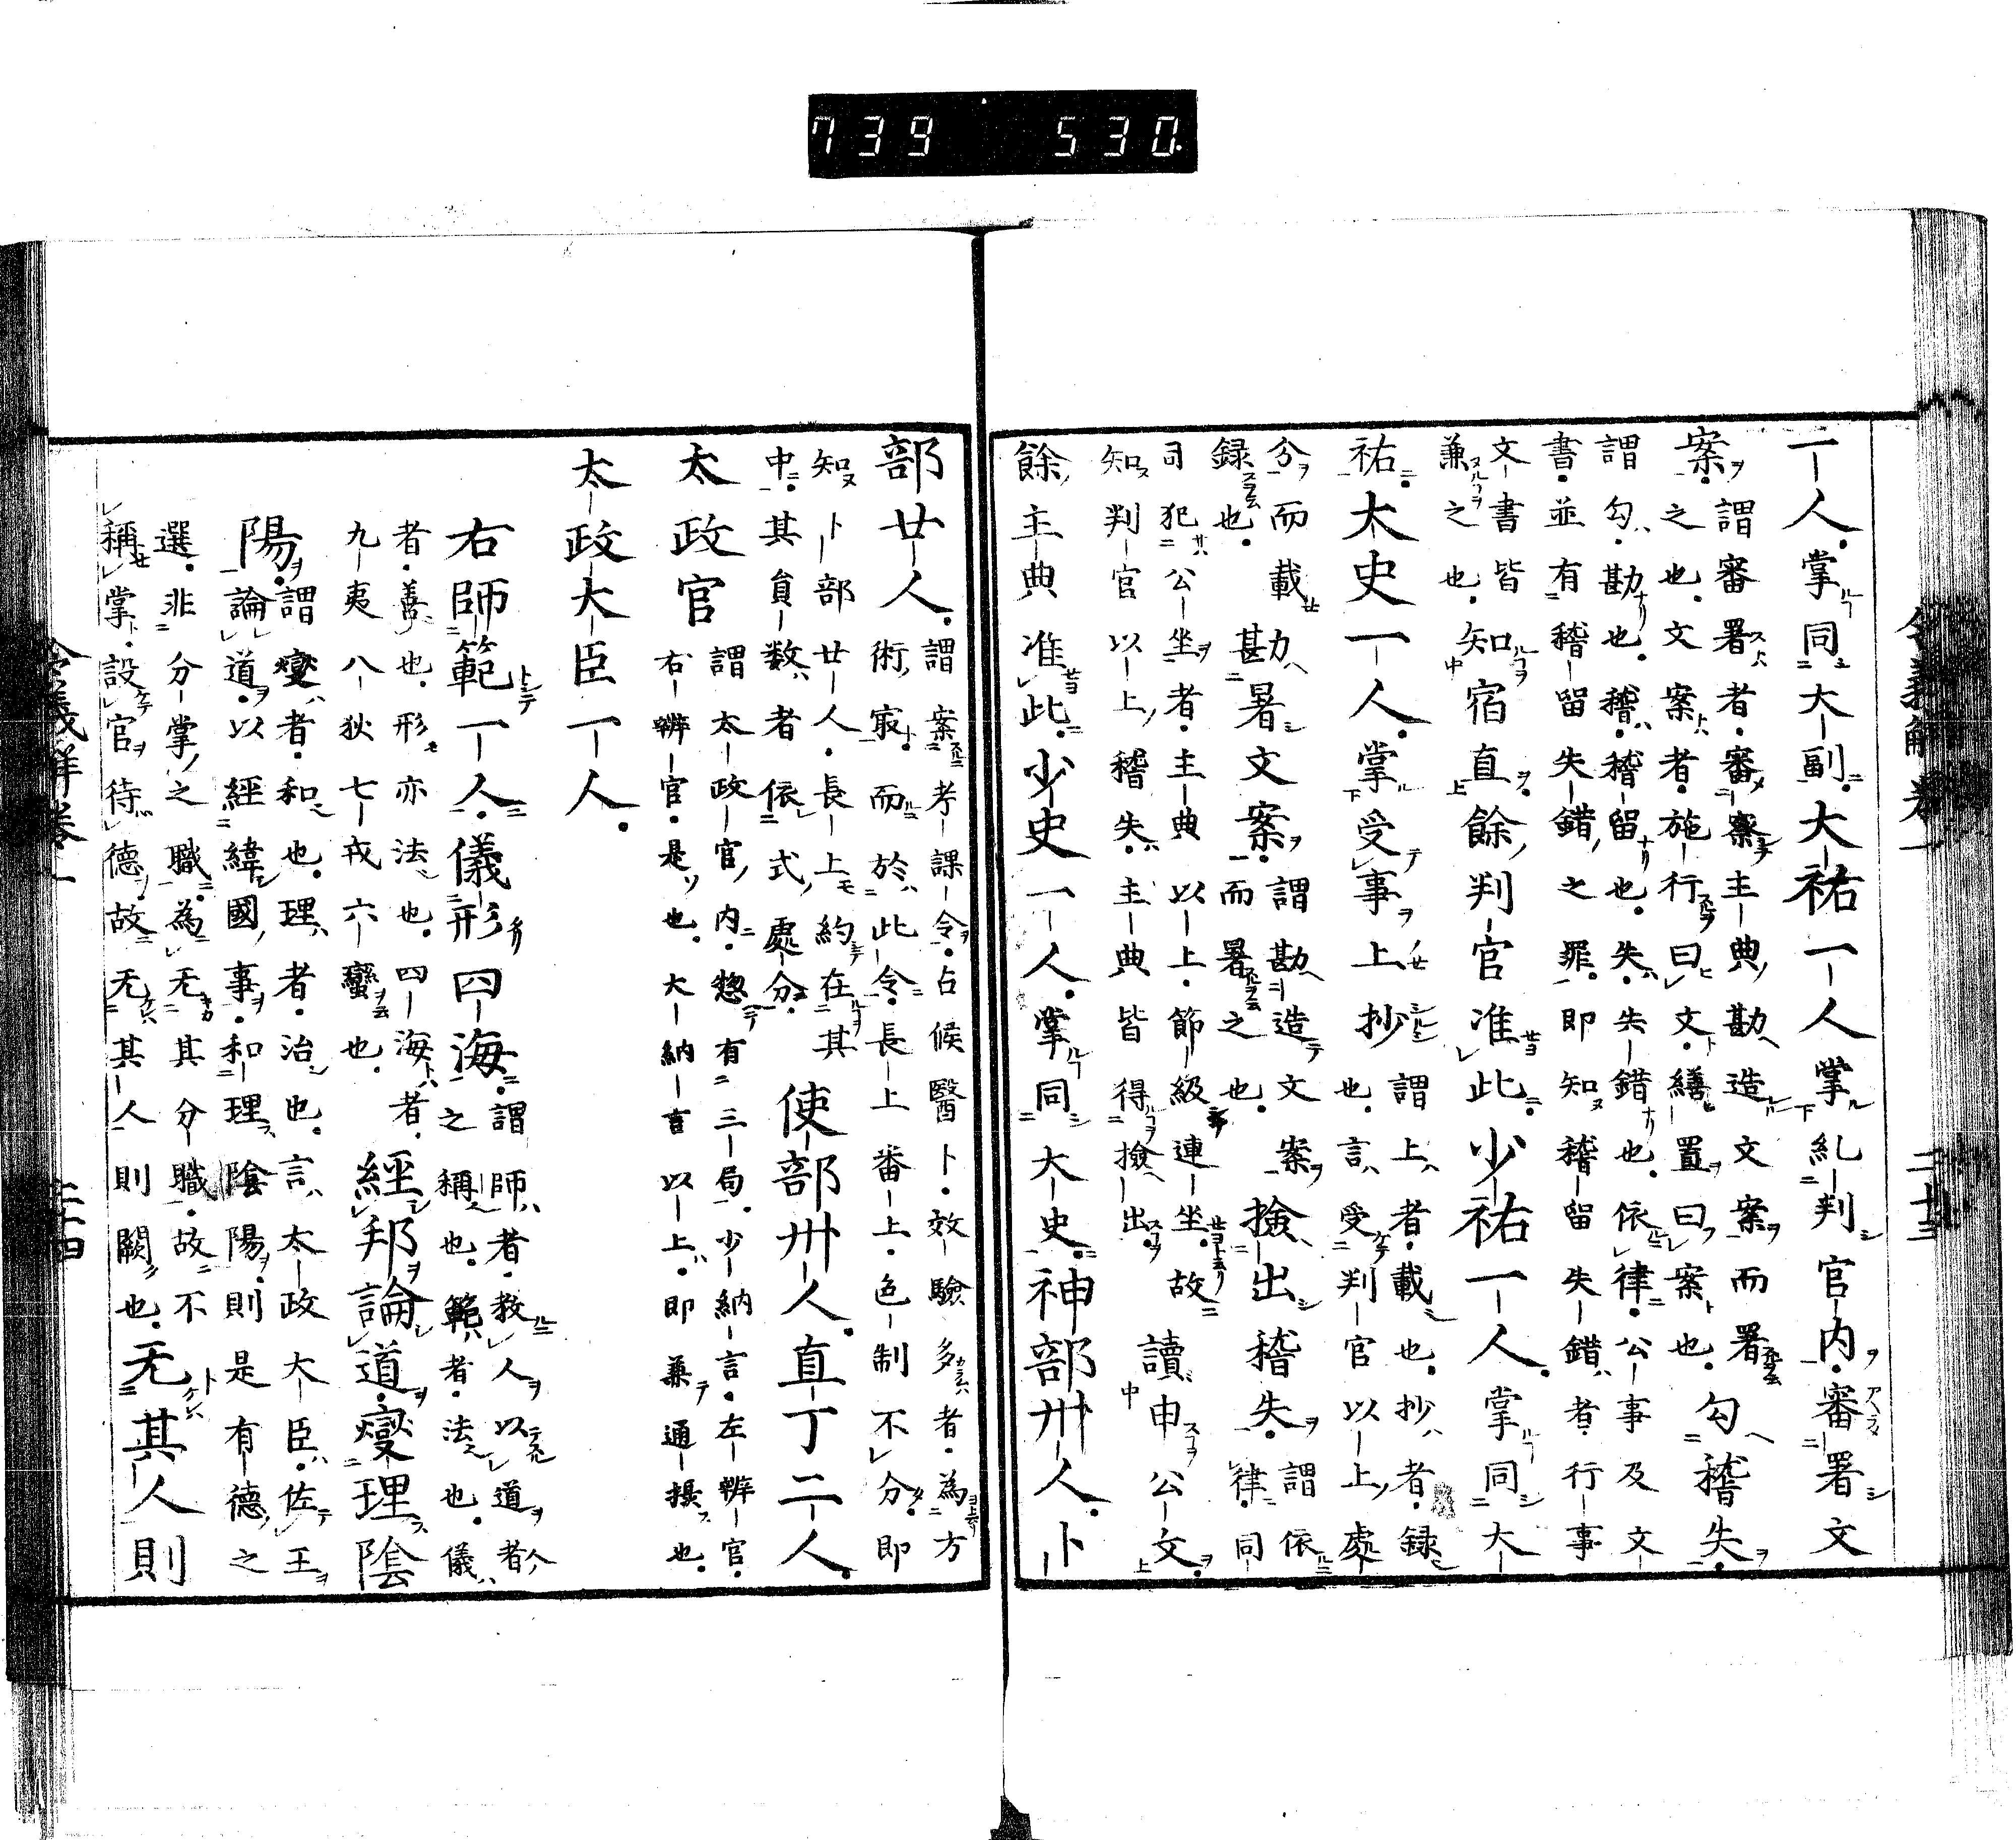 739 530.
令義解巻一 二十三
一人掌同大副大祐一人掌糺判官内審署文
案謂審署者審察主典勘造文案而署
之也文案者施行曰文繕置曰案也勾稽失
謂勾勘也稽稽留也失失錯也依律公事及文
書並有稽留失錯之罪即知稽留失錯者行事
文書皆
兼之也知宿直餘判官准此少祐一人掌同大
祐大史一人掌受事上抄謂上者載也抄者録
也言受判官以上處
分而載
録也勘署文案謂勘造文案
而署之也檢出稽失謂依
律同
司犯公坐者主典以上節級連坐故
知判官以上稽失主典皆得檢出讀申公文
餘主典准此少史一人掌同大史神部卅人卜
部廿人謂案考課令占候醫卜效驗多者為方
術㝡而於此令長上番上色制不分即
知卜部廿人長上約在其
中其員数者依式處分使部卅人直丁二人
太政官謂太政官内惣有三局少納言左辨官
右辨官是也大納言以上即兼通摂也
太政大臣一人
右師範一人儀形四海謂師者教人以道者
之稱也範者法也儀
者善也形亦法也四海者
九夷八狄七戎六蠻也經邦論道燮理陰
陽謂燮者和也理者治也言太政大臣佐王
論道以經緯國事和理陰陽則是有德之
選非分掌之職為无其分職故不
稱掌設官待德故无其人則闕也无其人則
令義解巻一 二十四